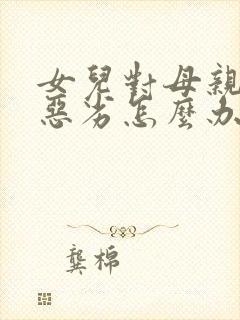 女兒對母親
惡劣怎麼办
龔棉